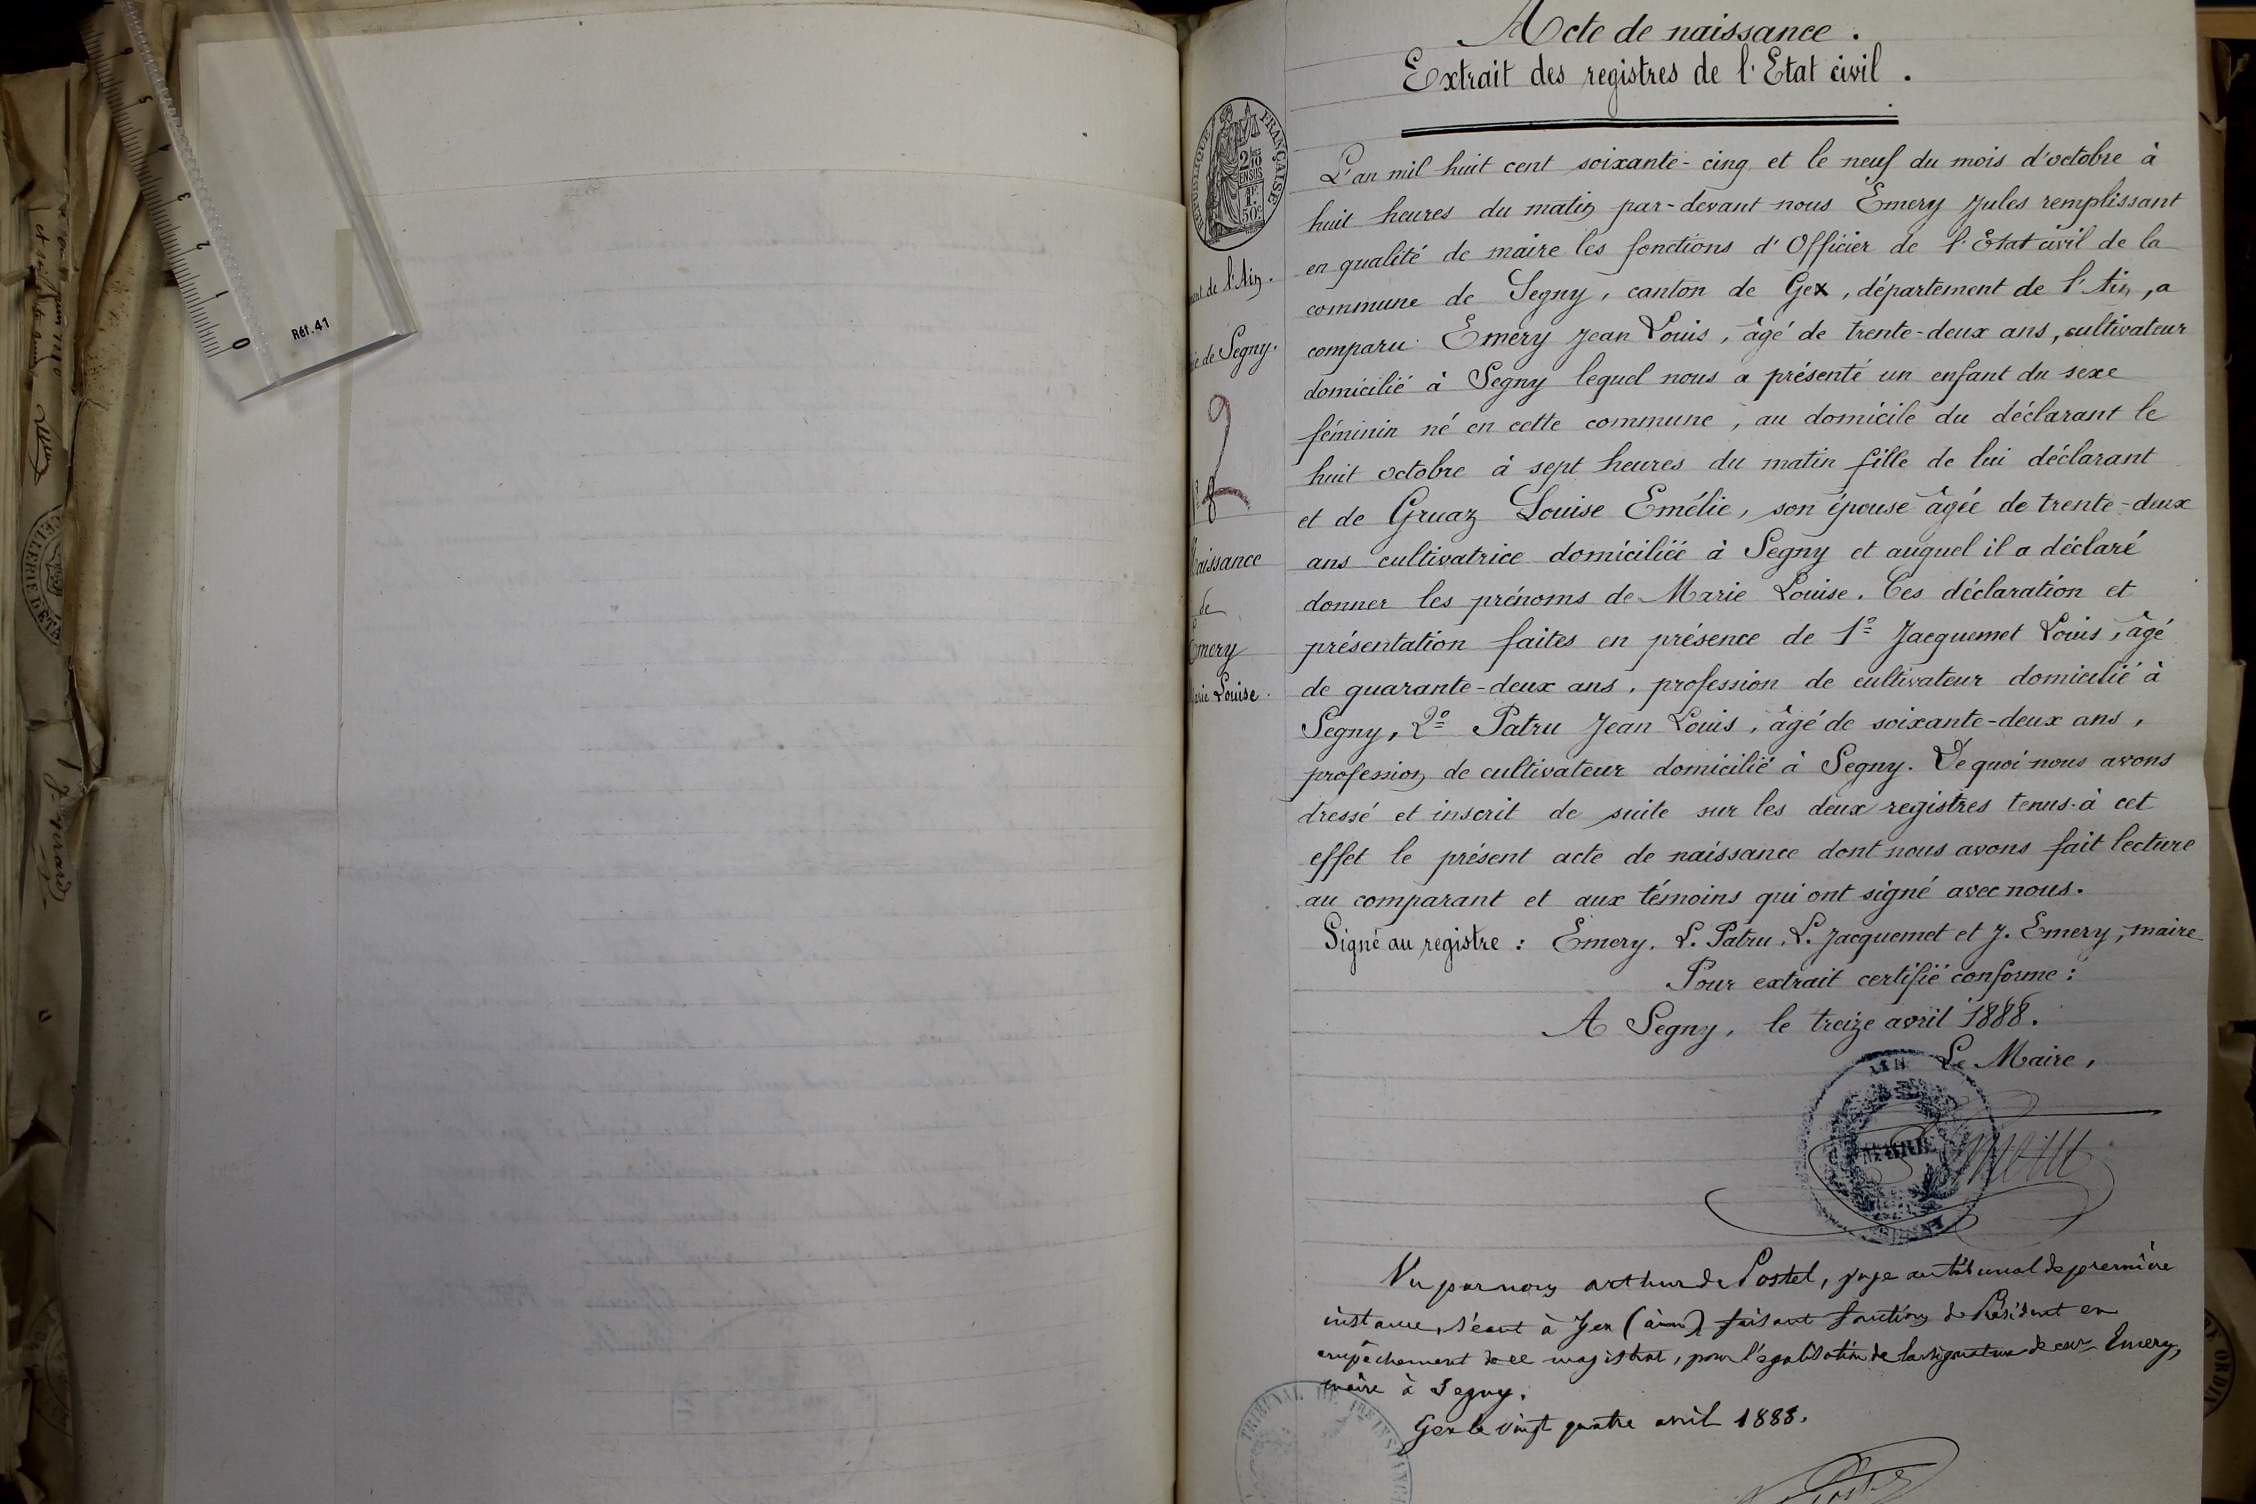 Acte de naissance.
Extrait des registres de l'Etat civil.
FRANÇAISE
2/10
EN SUS
1F.
50c
de l'Ain.
de Segny.
Naissance
de
Emery
Marie Louise.
L'an mil huit cent soixante-cinq et le neuf du mois d'octobre à
huit heures du matin par-devant nous Emery Jules remplissant
en qualité de maire les fonctions d'Officier de l'Etat civil de la
commune de Segny, canton de Gex, département de l'Ain, a
comparu Emery Jean Louis, âgé de trente-deux ans, cultivateur
domicilié à Segny lequel nous a présenté un enfant du sexe
féminin né en cette commune, au domicile du déclarant le
huit octobre à sept heures du matin fille de lui déclarant
et de Gruaz Louise Emélie, son épouse âgée de trente-deux
ans cultivatrice domiciliée à Segny et auquel il a déclaré
donner les prénoms de Marie Louise. Ces déclaration et
présentation faites en présence de 1º Jacquemet Louis, âgé
de quarante-deux ans, profession de cultivateur domicilié à
Segny, 2º Patru Jean Louis, âgé de soixante-deux ans,
profession de cultivateur domicilié à Segny. De quoi nous avons
dressé et inscrit de suite sur les deux registres tenus à cet
effet le présent acte de naissance dont nous avons fait lecture
au comparant et aux témoins qui ont signé avec nous.
Signé au registre : Emery. L. Patru, L. Jacquemet et J. Emery, maire
Pour extrait certifié conforme :
A Segny, le treize avril 1888.
Le Maire,
AIN
MAIRIE
Emery
Vu par nous Arthur de Postel, juge au tribunal de première
instance, séant à Gex (Ain) faisant fonctions de Président en
empêchement de ce magistrat, pour légalisation de la signature de Emery,
maire à Segny.
Gex le vingt quatre avril 1888.
TRIBUNAL DE 1RE INSTANCE
Réf.41
0
1
2
3
4
5
6